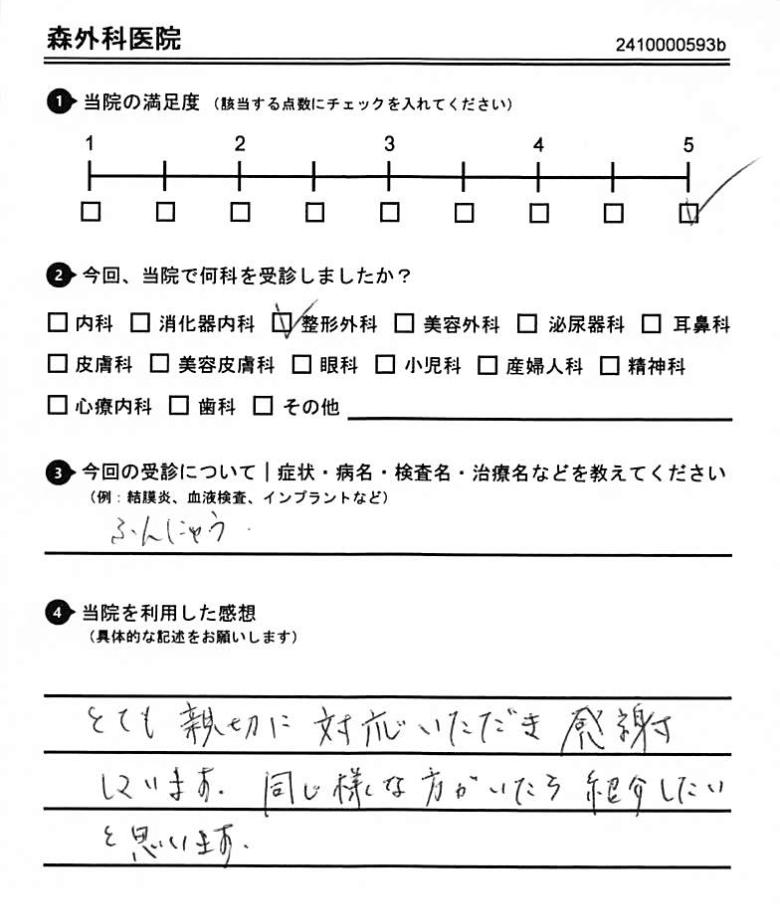 森外科医院
2410000593b
1 当院の満足度 (該当する点数にチェックを入れてください)
1 2 3 4 5
2 今回、当院で何科を受診しましたか？
内科 消化器内科 整形外科 美容外科 泌尿器科 耳鼻科
皮膚科 美容皮膚科 眼科 小児科 産婦人科 精神科
心療内科 歯科 その他
3 今回の受診について｜症状・病名・検査名・治療名などを教えてください
(例：結膜炎、血液検査、インプラントなど)
ふんにゅう
4 当院を利用した感想
(具体的な記述をお願いします)
とても 親切に 対応いただき 感謝
しています。同じ様な方がいたら 紹介したい
と思います。